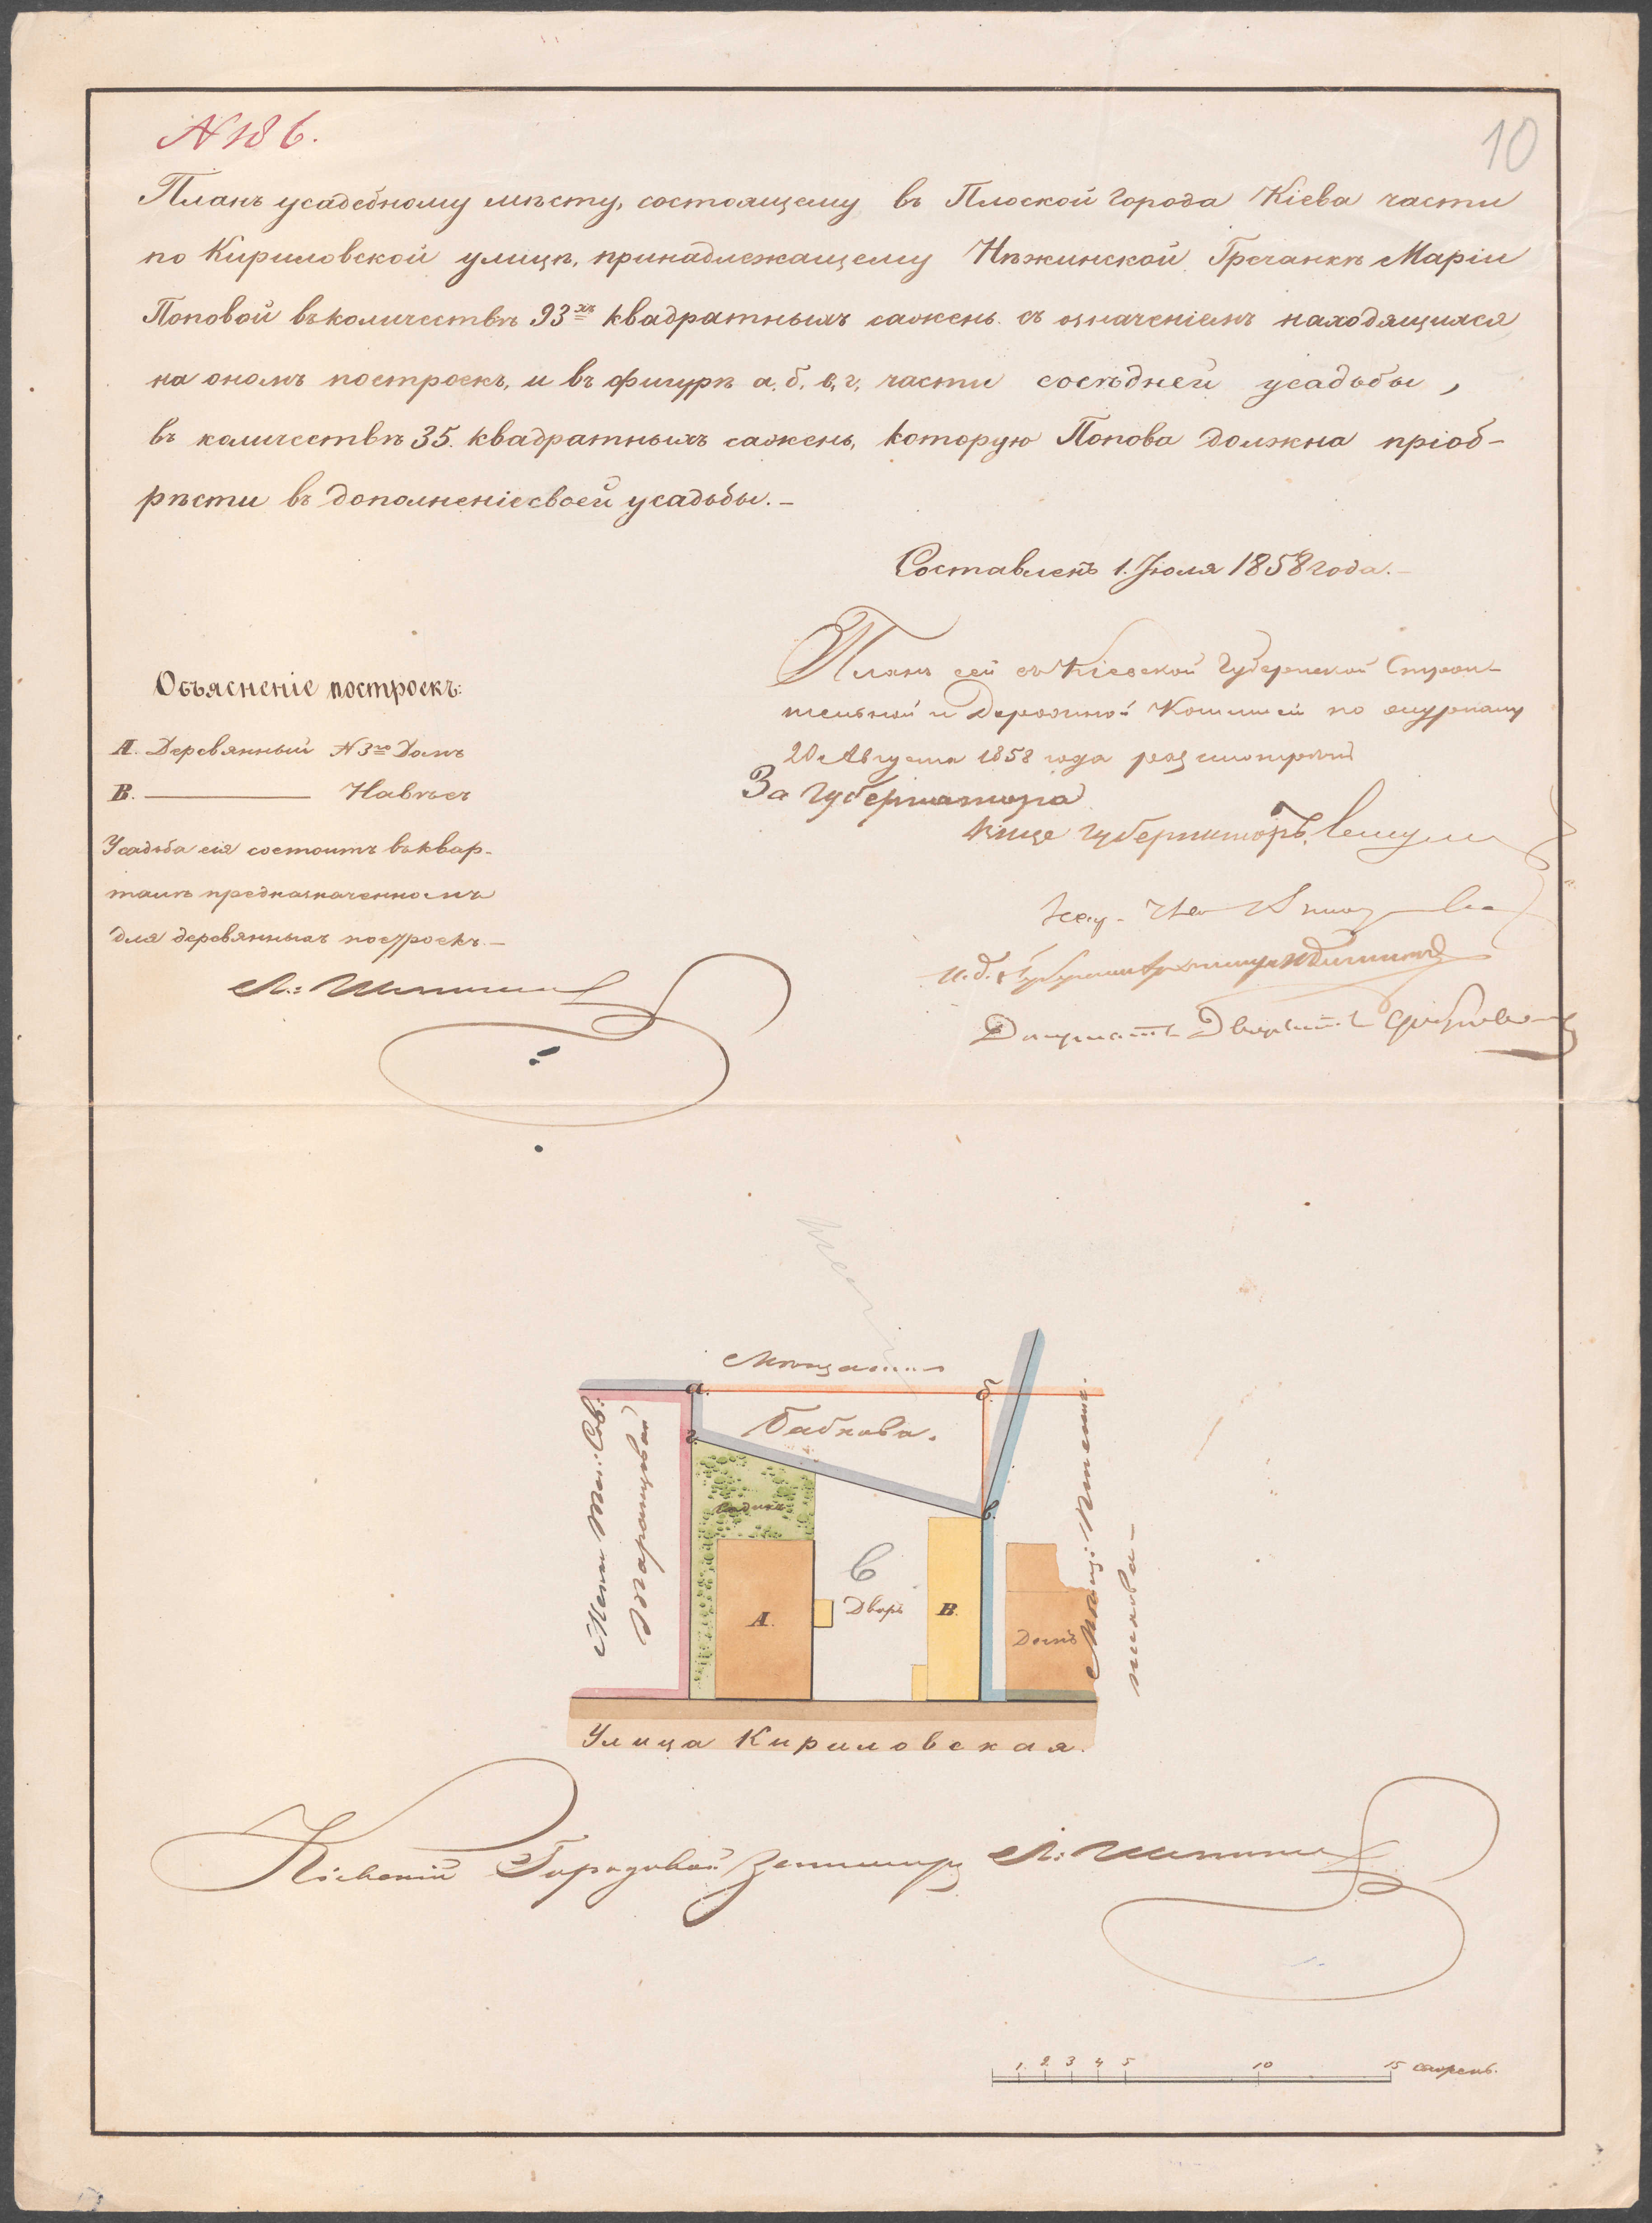 № 186.
10
Планъ усадебному мѣсту, состоящему въ Плоской города Кіева части
по Кириловской улицѣ, принадлежащему Нѣжинской Гречанкѣ Маріи
Поповой въ количествѣ 93хъ квадратныхъ сажень съ означеніемъ находящихся
на ономъ построекъ, и въ фигурѣ а, б, в, г, части сосѣдней усадьбы,
въ количествѣ 35 квадратныхъ сажень, которую Попова должна пріоб-
рѣсти въ дополненіе своей усадьбы.-
Составленъ 1. Іюля 1858 года.-
Планъ сей въ Кіевской Губернской Строи-
тельной и Дорожной Комисіи по журналу
20 Августа 1858 года разсмотрѣнъ
За Губернатора
Вице Губернаторъ
Объясненіе построекъ:
А. Деревянный № 3го Домъ
В. ——— Навѣсъ
Усадьба сія состоитъ въ квар-
талѣ предназначенномъ
для деревянныхъ построекъ.-
Мѣщанина
а. б.
Бабкова.
г.
Садикъ
в.
6
Дворъ
А. В.
Домъ
Улица Кириловская.
Кіевскій Городовой Землемѣръ
1 2 3 4 5 10 15 сажень.